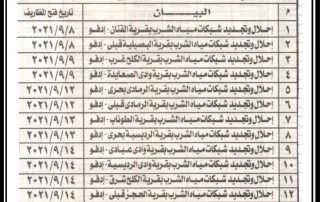 م البيان تاريخ فتح المظاريف
1 إحلال وتجديد شبكات مياه الشرب بقرية القنان - إدفو ٢٠٢١/٩/٨
2 إحلال وتجديد شبكات مياه الشرب بقرية البصيلية قبلى - إدفو ٢٠٢١/٩/٨
3 إحلال وتجديد شبكات مياه الشرب بقرية الكلح غرب - إدفو ٢٠٢١/٩/٨
4 إحلال وتجديد شبكات مياه الشرب بقرية وادى الصعايدة - إدفو ٢٠٢١/٩/٩
5 إحلال وتجديد شبكات مياه الشرب بقرية الرمادى بحرى - إدفو ٢٠٢١/٩/١٢
6 إحلال وتجديد شبكات مياه الشرب بقرية الرمادى قبلى - إدفو ٢٠٢١/٩/١٢
7 إحلال وتجديد شبكات مياه الشرب بقرية الطوناب - إدفو ٢٠٢١/٩/١٣
8 إحلال وتجديد شبكات مياه الشرب بقرية الرديسية بحرى - إدفو ٢٠٢١/٩/١٣
9 إحلال وتجديد شبكات مياه الشرب بقرية وادى عبادى - إدفو ٢٠٢١/٩/١٤
10 إحلال وتجديد شبكات مياه الشرب بقرية وادى الرديسية - إدفو ٢٠٢١/٩/١٤
11 إحلال وتجديد شبكات مياه الشرب بقرية الكلح شرق - إدفو ٢٠٢١/٩/١٤
١٢ إحلال وتجديد شبكات مياه الشرب بقرية الحجز قبلى - إدفو ٢٠٢١/٩/١٤